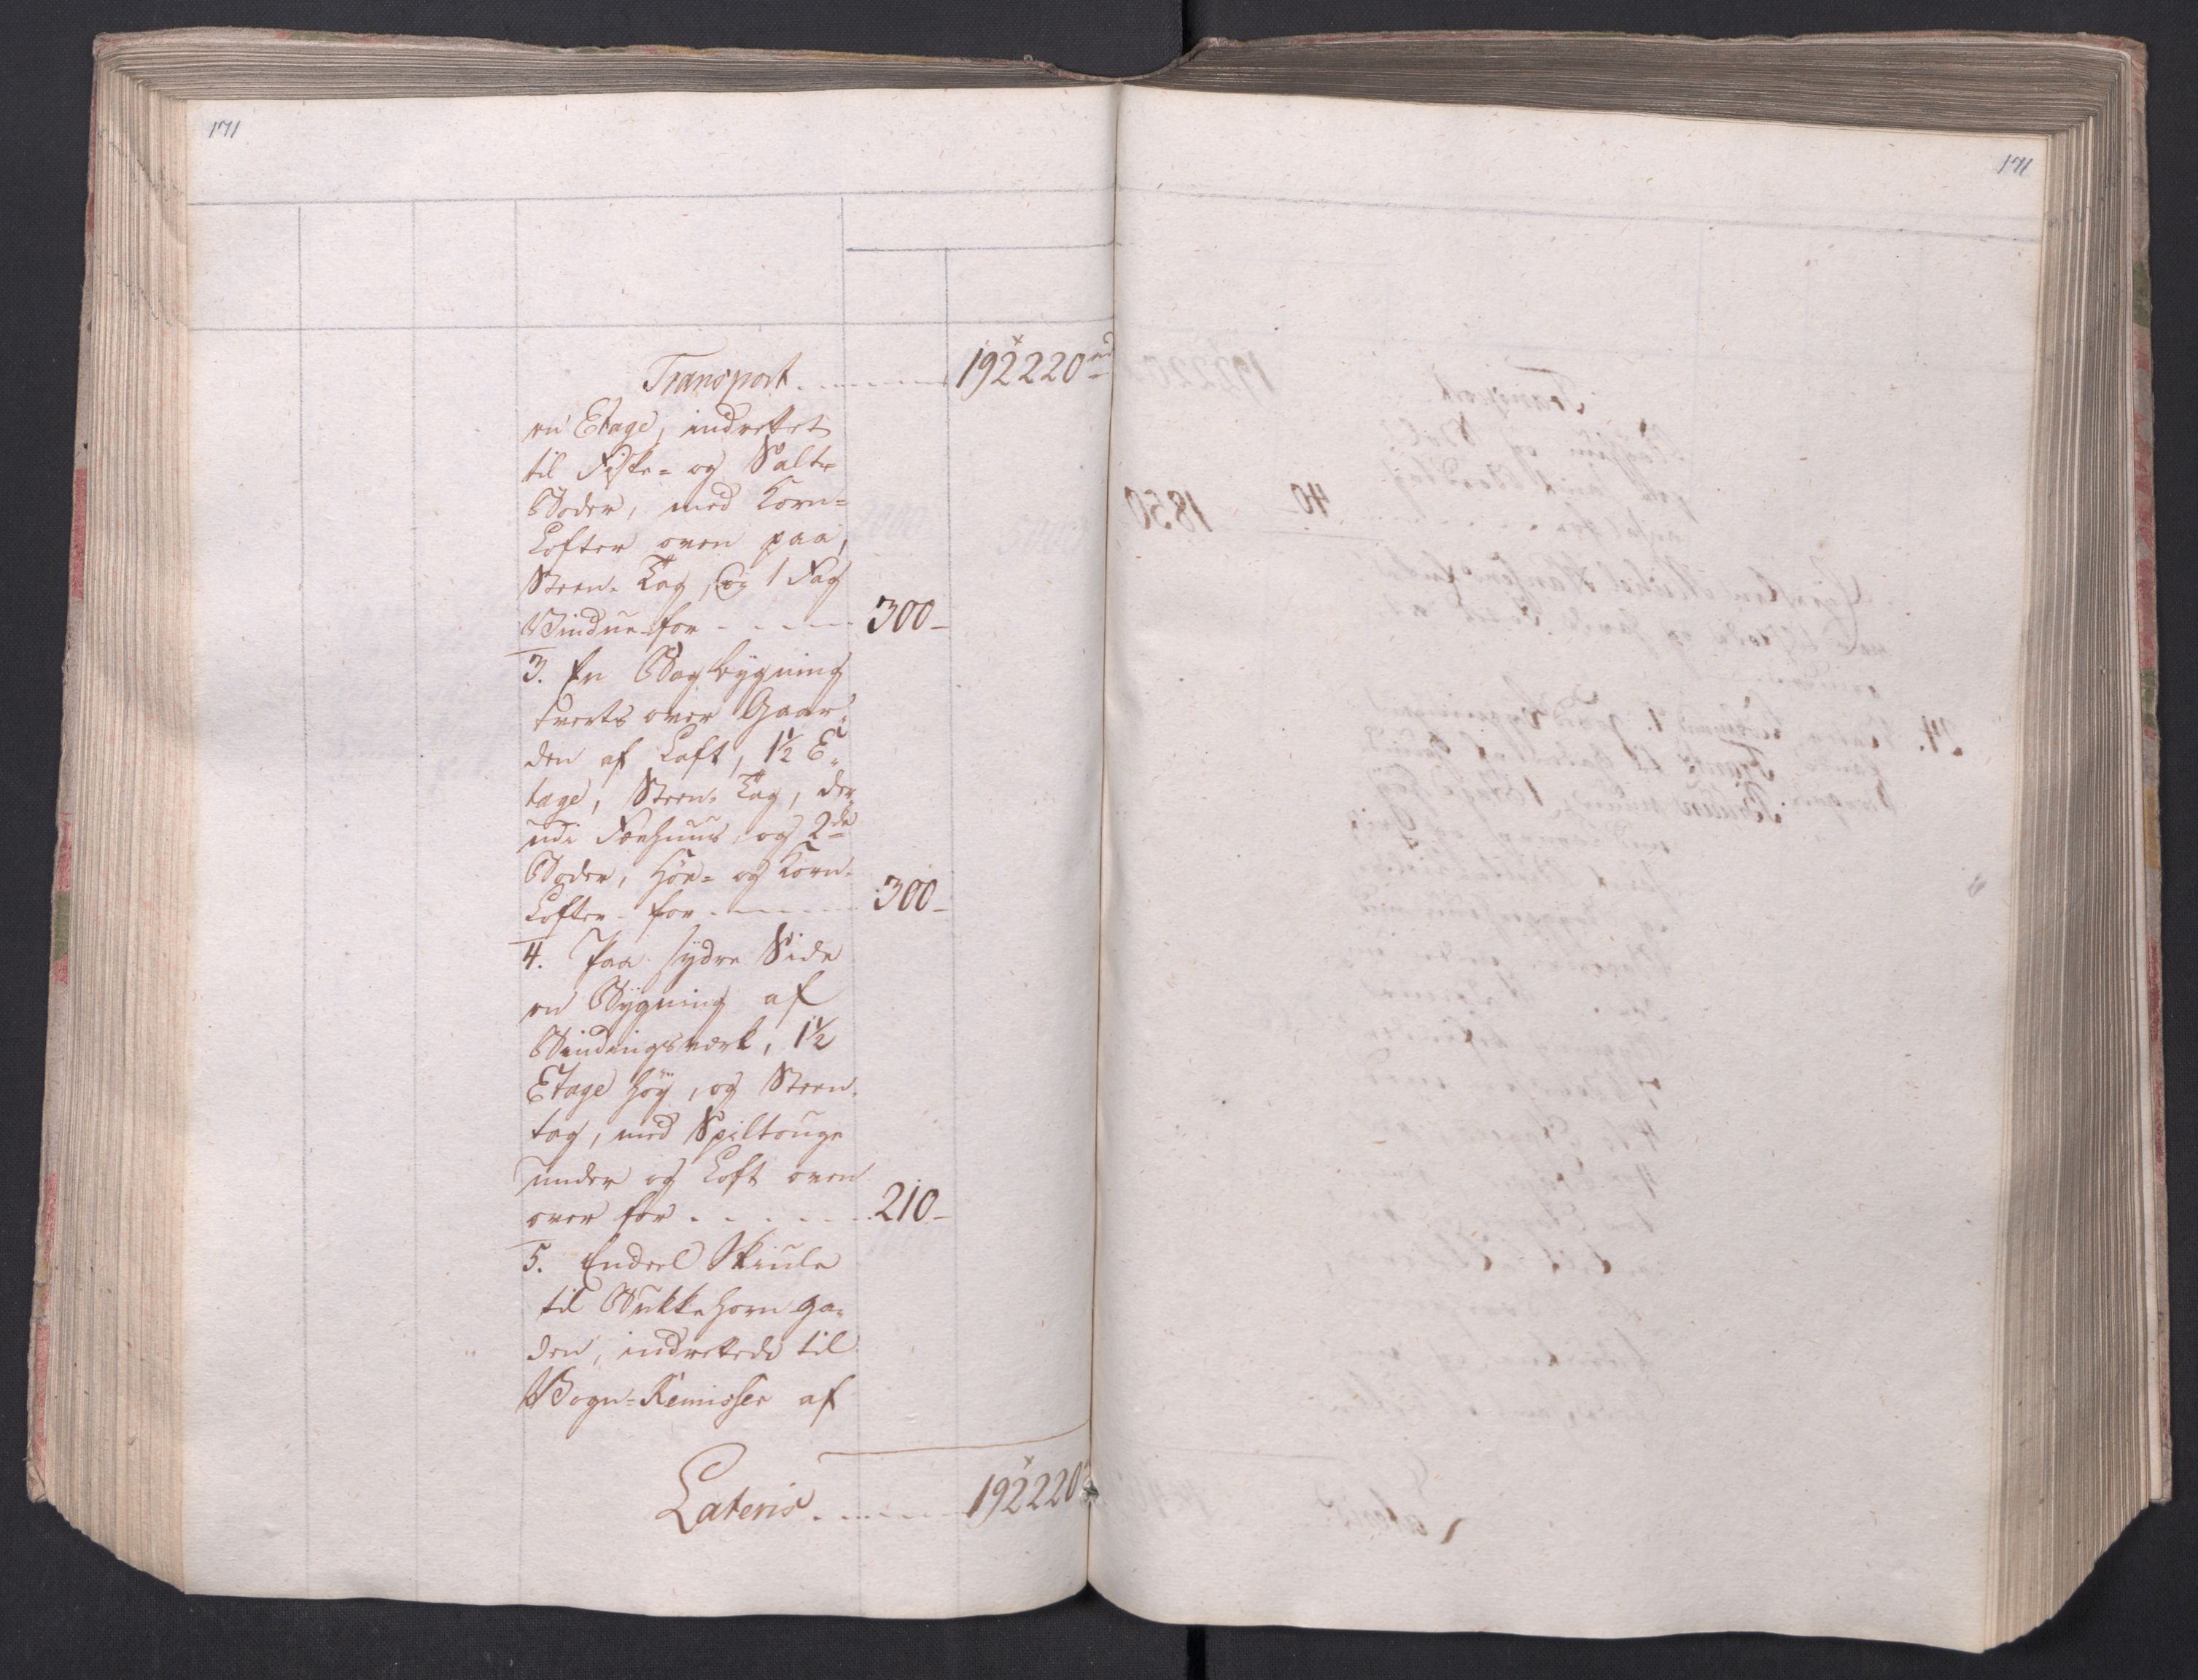 171
Transport . . . . . . 192220 rd
en Etage, indrettet
til Fiske- og Salt-
Boder, med Korn-
Lofter oven paa,
Steen- Tag, og 1 Fag
Vindue for . . . . . 300 -
3. En Bagbygning
tverts over Gaar-
den af Laft, 1½ E-
tage, Steen- Tag, der
udi Fæehuus og 2de
Boder, Høe- og Korn-
Lofter - for . . . . . 300 -
4. Paa sydre Side
en Bygning af
Bindingsværk, 1½
Etage høy, og Steen-
tag, med Spiltouge
under og Loft oven
over for . . . . . . 210 -
5. Endeel Skiule
til Bukkehorn ga-
den, indrettede til
Vogn-Remisser af
Lateris . . . . . . 192220
171